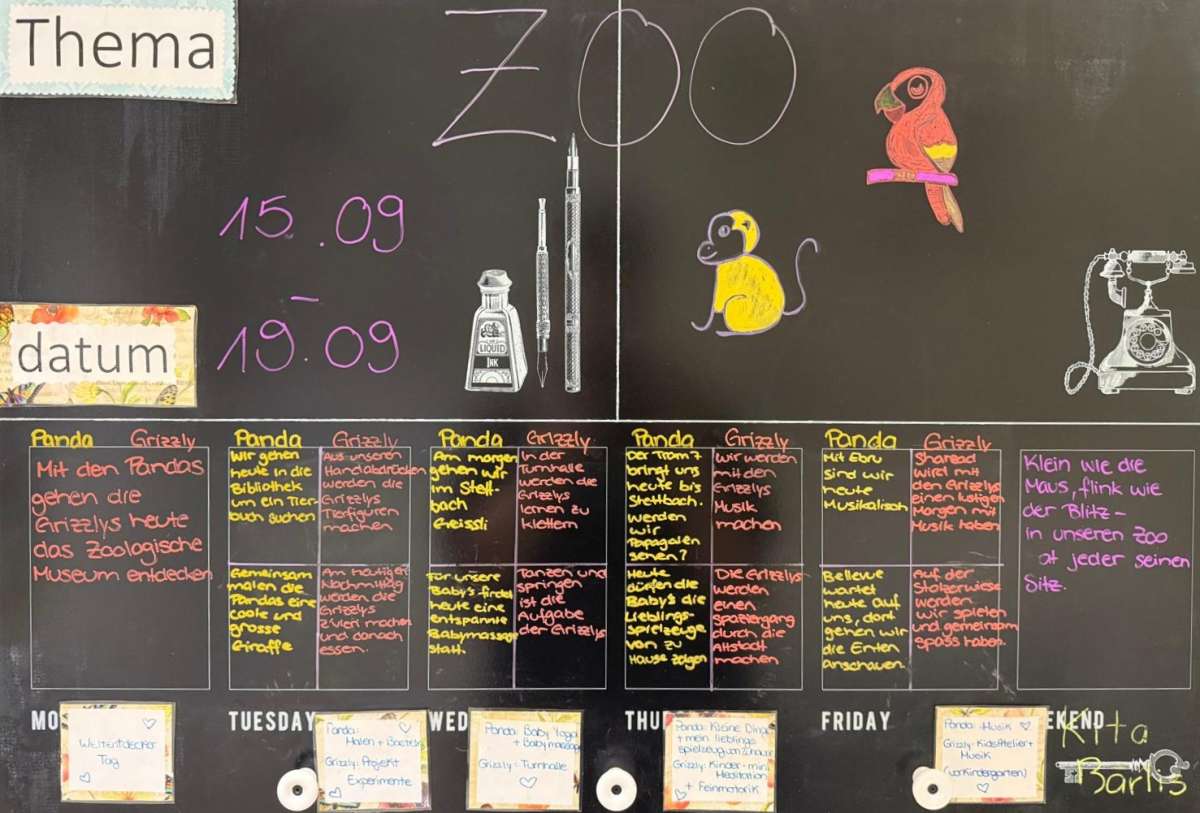 Thema
ZOO
15.09
–
19.09
datum
LIQUID
INK
Panda Grizzly
Mit den Pandas
gehen die
Grizzlys heute
das Zoologische
Museum entdecken
Panda
Wir gehen
heute in die
Bibliothek
um ein Tier-
buch suchen
Grizzly
Aus unseren
Handabdrücken
werden die
Grizzlys
Tierfiguren
machen
Gemeinsam
malen die
Pandas eine
coole und
grosse
Giraffe
Am heutigen
Nachmittag
werden die
Grizzlys
Zvieri machen
und danach
essen.
Panda
Am morgen
gehen wir
im Stett-
bach
Geissli
Grizzly
In der
Turnhalle
werden die
Grizzlys
lernen zu
klettern
Für unsere
Baby's findet
heute eine
entspannte
Babymassage
statt.
Tanzen und
springen
ist die
Aufgabe
der Grizzlys
Panda
Der Tram 7
bringt uns
heute bis
Stettbach.
Werden
wir
Papageien
sehen?
Grizzly
Wir werden
mit den
Grizzlys
Musik
machen
Heute
dürfen die
Baby's die
Lieblings
spielzeuge
von zu
Hause zeigen
Die Grizzlys
werden
einen
spaziergang
durch die
Altstadt
machen
Panda
Mit Ebru
sind wir
heute
Musikalisch
Grizzly
Sharead
wird mit
den Grizzlys
einen lustigen
Morgen mit
Musik haben
Bellevue
wartet
heute auf
uns, dort
gehen wir
die Enten
anschauen.
Auf der
Stolzewiese
werden
wir spielen
und gemeinsam
spass haben.
Klein wie die
Maus, flink wie
der Blitz –
in unseren Zoo
at jeder seinen
Sitz.
MO
Weltentdecker
Tag
TUESDAY
Panda:
Malen + Basteln
Grizzly: Projekt
Experimente
WED
Panda: Baby Yoga
+ Babymassage
Grizzly: Turnhalle
THU
Panda: Kleine Dinge
+ mein lieblings
spielzeug von Zuhause
Grizzly: Kinder-mini
Meditation
+ Feinmotorik
FRIDAY
Panda: Musik
Grizzly: KidsAtelier +
Musik
(vorkindergarten)
EKEND
Kita
Barlis